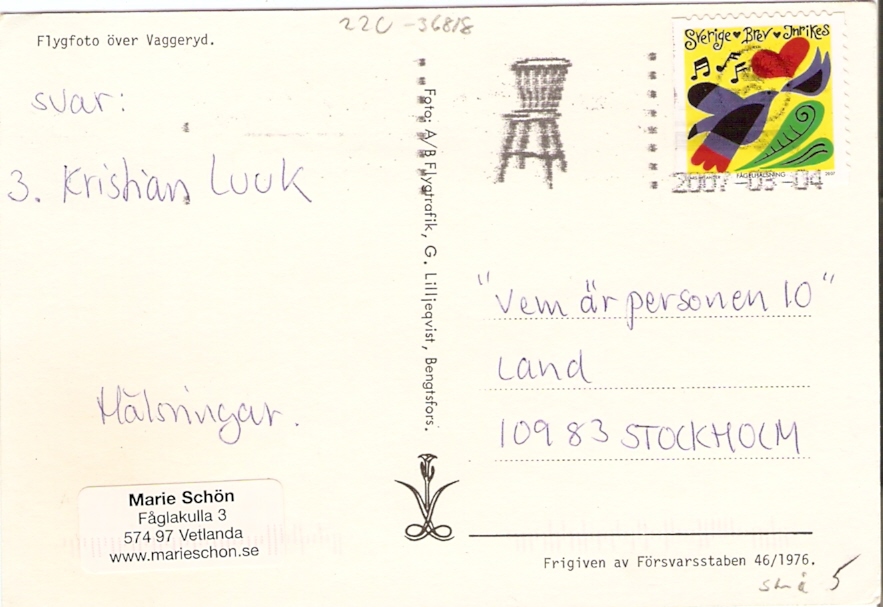 22C-36818
Flygfoto över Vaggeryd.
Sverige Brev Inrikes
2007-03-04
svar:
3. Kristian Luuk
Hälsningar.
Marie Schön
Fåglakulla 3
574 97 Vetlanda
www.marieschon.se
Foto: A/B Flygtrafik, G. Lilljeqvist, Bengtsfors.
"Vem är personen 10"
Land
109 83 STOCKHOLM
Frigiven av Försvarsstaben 46/1976.
små 5